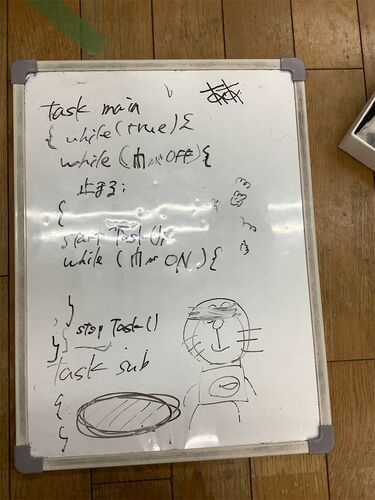 task main
{ while(true){
while(巾がOFF){
止まる;
{
start Task();
while(巾がON){
}
} stop Task()
}
task sub
{
}